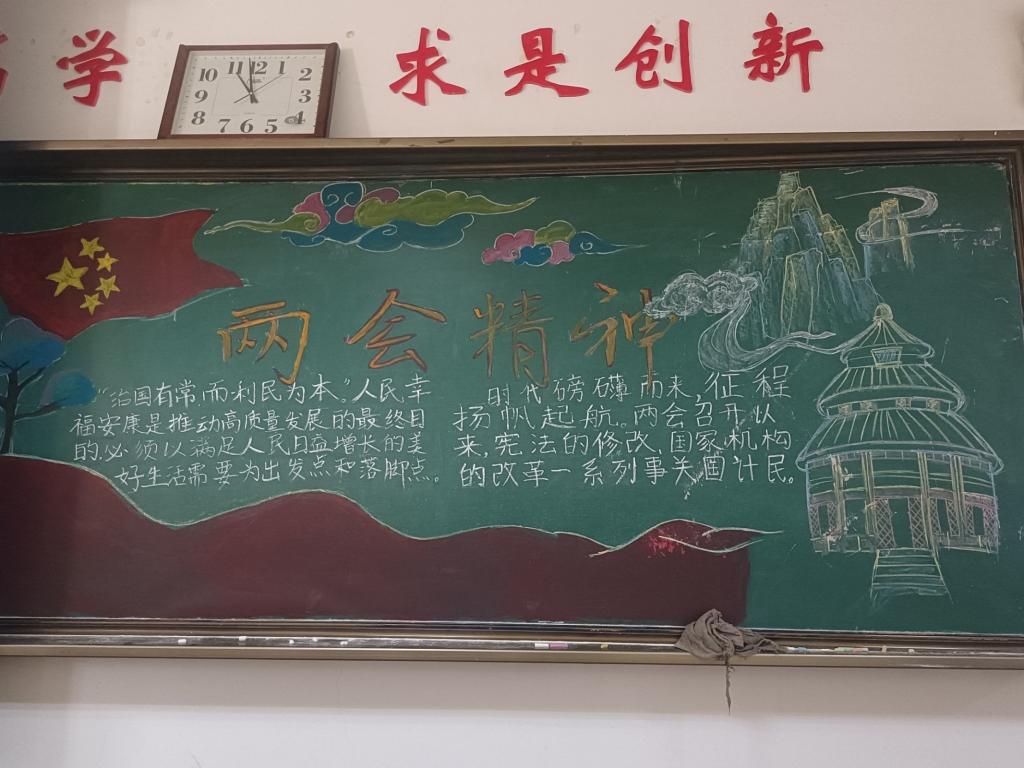 学 求是创新
11 12 1
10 2
9 3
8 4
7 6 5
两会精神
“治国有常,而利民为本。”人民幸
福安康是推动高质量发展的最终目
的,必须以满足人民日益增长的美
好生活需要为出发点和落脚点。
时代磅礴而来,征程
扬帆起航。两会召开以
来,宪法的修改,国家机构
的改革一系列事关国计民。